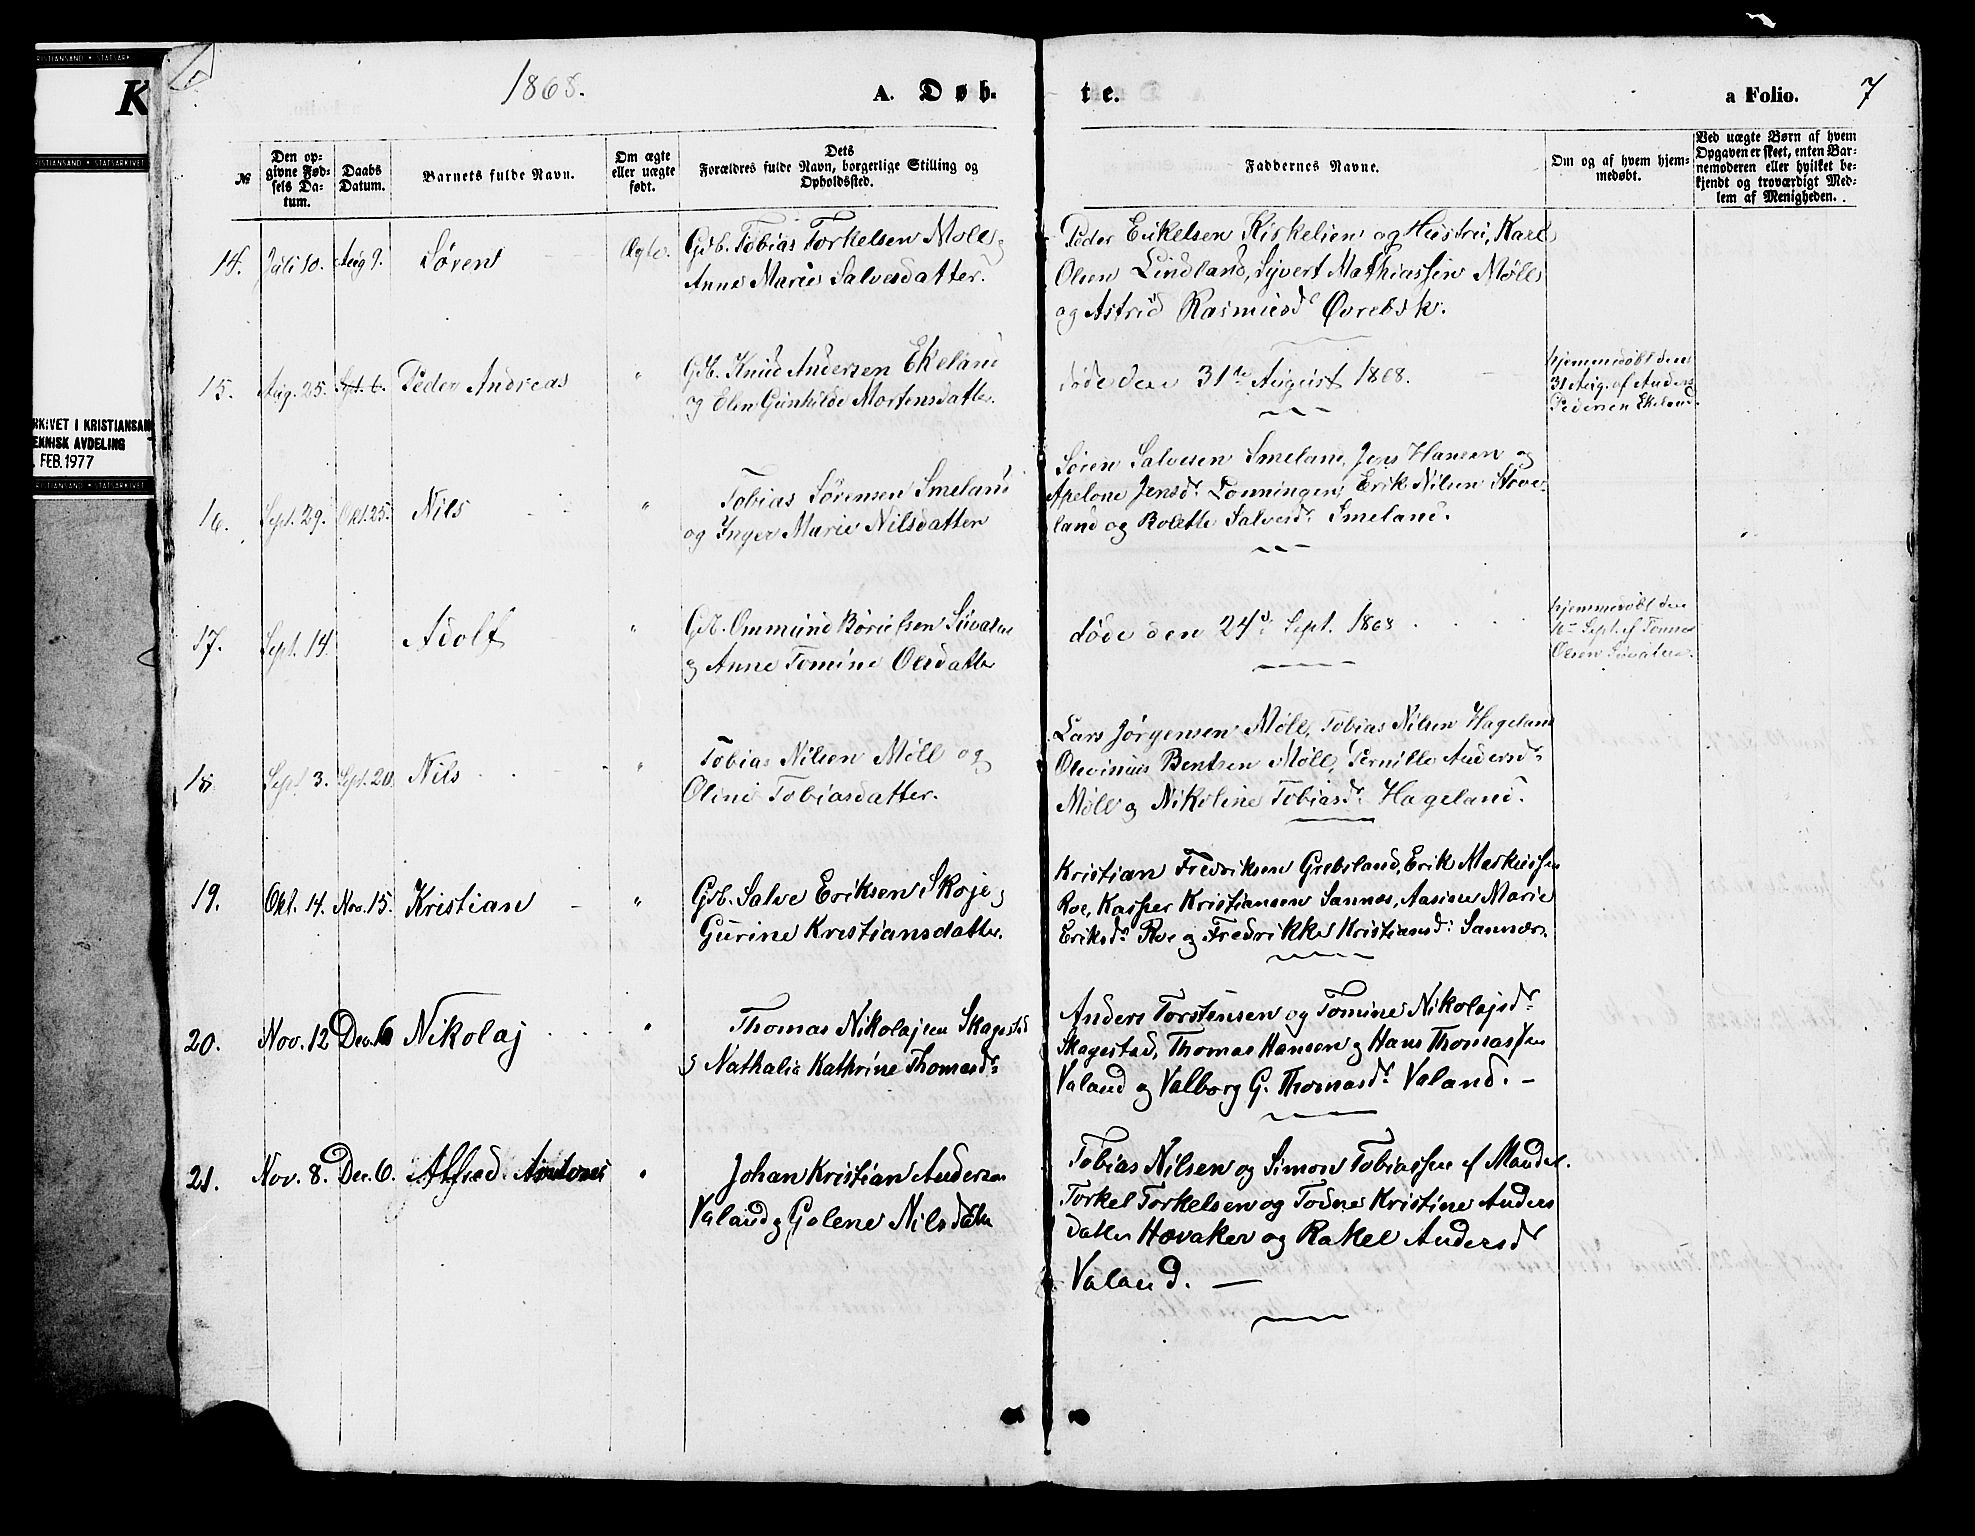 1868.
A. Døb-
te.
a Folio.
7
K
KRISTIANSAND • STATSARK
KRISTIANSAND • STATSARKIVET
RKIVET I KRISTIANSAN
EKNISK AVDELING
FEB. 1977
KRISTIANSAND • STATSARKIVET
№
Den op-
givne Fød-
sels Da-
tum.
Daabs
Datum.
Barnets fulde Navn.
Om ægte
eller uægte
født.
Dets
Forældres fulde Navn, borgerlige Stilling og
Opholdssted.
Faddernes Navne.
Om og af hvem hjem-
medøbt.
Ved uægte Børn af hvem
Opgaven er skeet, enten Bar-
nemoderen eller hvilket be-
kjendt og troværdigt Med-
lem af Menigheden.
14. Juli 10. Aug 9. Søren
Gdb. Tobias Torkelsen Møll
Anne Marie Salvesdatter.
Peder Eriksen Kirkelien og Hustru, Karl
Olsen Lindland, Syvert Mathiassen Møll
og Astrid Rasmusd Øvrebø.
15. Aug. 25. Spt. 6. Peder Andreas "
Gdb. Knud Andersen Ekeland
og Elen Gunhilde Mortensdatter.
døde den 31te August 1868.
hjemmedøbt den
31 Aug. af Anders
Pedersen Ekeland
16. Sept. 29. Okt. 25. Nils "
Tobias Sørensen Smeland
og Inger Marie Nilsdatter
Søren Salvesen Smeland, Jens Hansen og
Apelone Jensd. Lonningen, Erik Nilsen Stove-
land og Bolette Salvesd. Smeland.
17. Sept. 14. Adolf "
Gdb. Ommund Børufsen
og Anne Tomine Olsdatter
døde den 24d. Sept. 1868
hjemmedøbt den
16 Sept. af Tønnes
Olsen
18. Sept 3. Sept. 20. Nils "
Tobias Nilsen Møll og
Oline Tobiasdatter.
Lars Jørgensen Møll, Tobias Nilsen Hageland
Olevinus Bentsen Møll, Pernille Andersd.
Møll og Nikoline Tobiasd. Hageland.
19. Okt. 14. Nov. 15. Kristian "
Gdb. Salve Eriksen Skoje og
Gurine Kristiansdatter.
Kristian Fredriksen Grebsland, Erik Markussen
Roe, Kasper Kristiansen Sannæs, Aasine Marie
Eriksd. Roe og Fredrikke Kristiansd. Sannæs.
20. Nov. 12 Dec. 6 Nikolaj "
Thomas Nikolajsen Skagestad
og Nathalie Kathrine Thomasd.
Anders Torstensen og Tomine Nikolajsd.
Skagestad, Thomas Hansen og Hans Thomassen
Valand og Valborg G. Thomasd. Valand. –
21. Nov. 8. Dec. 6. Alfred Antoni "
Johan Kristian Andersen
Valand og Golene Nilsdatter
Tobias Nilsen og Simon Tobiassen af Mandal.
Torkel Torkelsen og Todne Kristine Anders
datter Havaker og Rakel Andersd
Valand. –